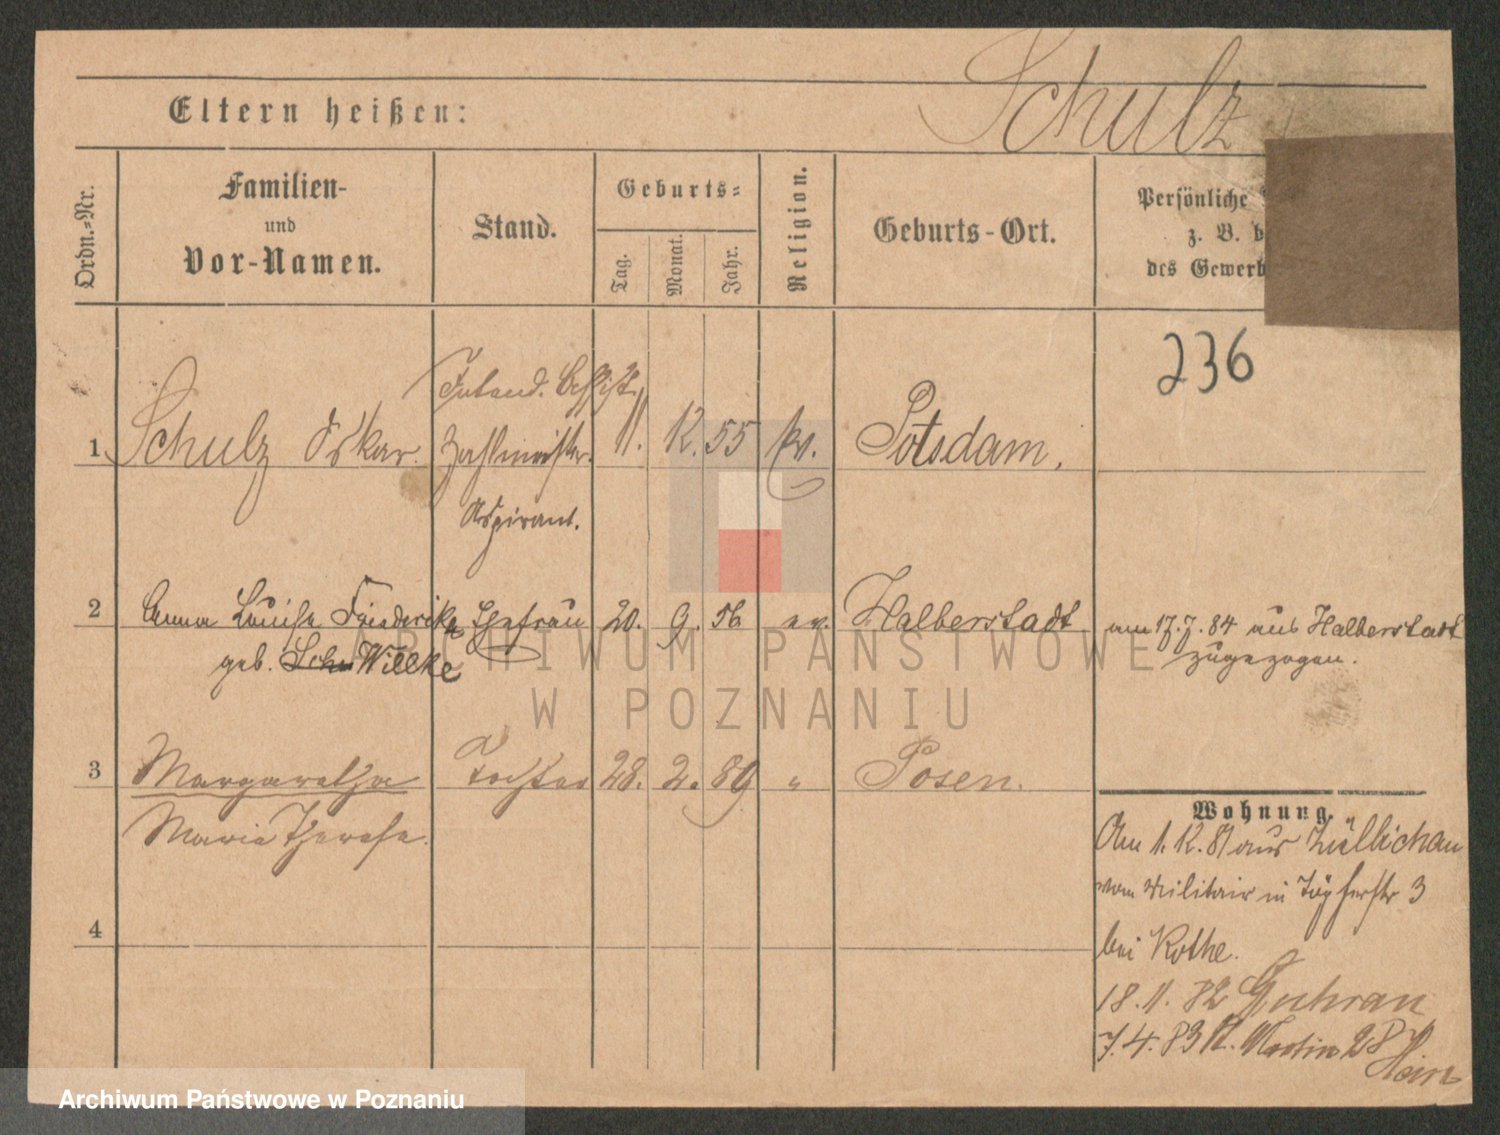 Schulz
Eltern heißen:
Ordn.-Nr.
Familien-
und
Vor-Namen.
Stand.
Geburts-
Tag.
Monat.
Jahr.
Religion.
Geburts-Ort.
Persönliche
z. B. b
des Gewerb
236
Intend.
1 Schulz Oskar. Zahlmeister. 11. 12. 55 Potsdam.
Aspirant.
2 Anna Louise Friederike Ehefrau 20. 9. 56 ev. Halberstadt am 17.7.84 aus Halberstadt
geb. Sch Willke zugezogen.
3 Margarethe Tochter 28. 2. 89 " Posen.
Maria Therese.
Wohnung.
Am 1.12.81 aus Züllichau
vom Militair in Töpferstr 3
bei Rothe.
4
18.11.82 Guhrau
7.4.83 St. Martin 28
Hein
ARCHIWUM PAŃSTWOWE
W POZNANIU
Archiwum Państwowe w Poznaniu